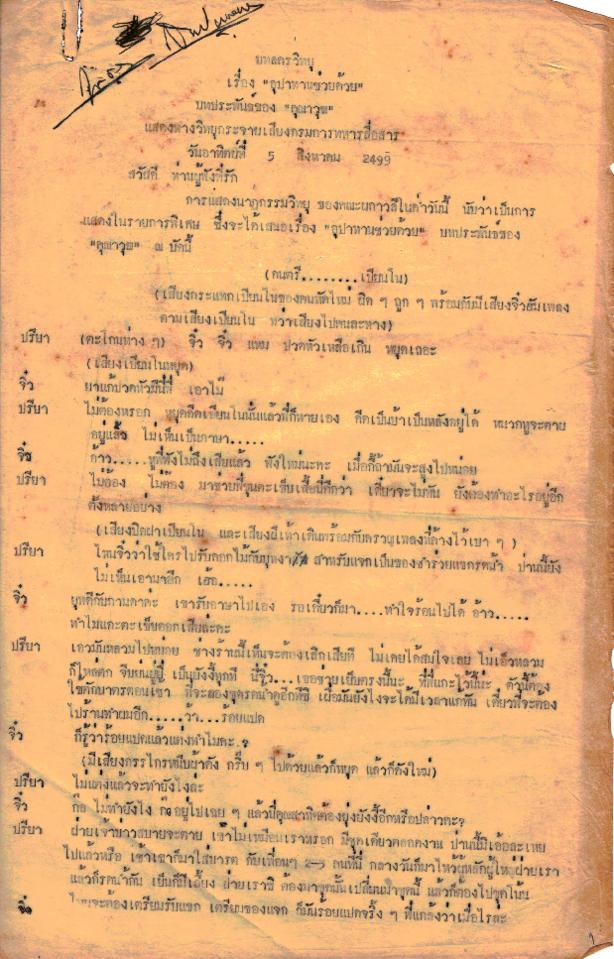 บทละครวิทยุ
เรื่อง "อุปาทานช่วยด้วย"
บทประพันธ์ของ "อุณาวุฒ"
แสดงทางวิทยุกระจายเสียงกรมการทหารสื่อสาร
วันอาทิตย์ที่ 5 สิงหาคม 2499
สวัสดี ท่านผู้ฟังที่รัก
การแสดงนาฏกรรมวิทยุ ของคณะผกาวลีในค่ำวันนี้ นับว่าเป็นการ
แสดงในรายการพิเศษ ซึ่งจะได้เสนอเรื่อง "อุปาทานช่วยด้วย" บทประพันธ์ของ
"อุณาวุฒ" ณ บัดนี้
(ดนตรี........เปียนโน)
(เสียงกระแทกเปียนโนของคนหัดใหม่ ผิด ๆ ถูก ๆ พร้อมกับมีเสียงจิ๋วฮัมเพลง
ตามเสียงเปียนโน ทว่าเสียงไปคนละทาง)
ปรียา (ตะโกนห่าง ๆ) จิ๋ว จิ๋ว แหม ปวดหัวเหลือเกิน หยุดเถอะ
(เสียงเปียนโนหยุด)
จิ๋ว ยาแก้ปวดหัวมีนี่พี่ เอาไม๊
ปรียา ไม่ต้องหรอก หยุดดีดเปียนโนนั่นแล้วพี่ก็หายเอง ดีดเป็นบ้าเป็นหลังอยู่ได้ หนวกหูจะตาย
อยู่แล้ว ไม่เห็นเป็นภาษา.....
จิ๋ว อ้าว.....หูพี่ฟังไม่ถึงเสียแล้ว ฟังใหม่นะคะ เมื่อกี้ถ้ามันจะสูงไปหน่อย
ปรียา ไม่ต้อง ไม่ต้อง มาช่วยพี่ขุนตะเข็บเสื้อนี่ดีกว่า เดี๋ยวจะไม่ทัน ยังต้องทำอะไรอยู่อีก
ตั้งหลายอย่าง
(เสียงปิดฝาเปียนโน และเสียงฝีเท้าเดินพร้อมกับครวญเพลงที่ค้างไว้เบา ๆ )
ปรียา ไหนจิ๋วว่าใช้ใครไปรับดอกไม้กับบุหงา สำหรับแจกเป็นของชำร่วยแขกรดน้ำ ป่านนี้ยัง
ไม่เห็นเอามาอีก เฮ้อ.....
จิ๋ว ยุทดีกับกามดาค่ะ เขารับอาษาไปเอง รอเดี๋ยวก็มา....ทำใจร้อนไปได้ อ้าว.....
ทำไมแกะตะเข็บออกเสียล่ะคะ
ปรียา เอวมันหลวมไปหน่อย ช่างร้านนี้เห็นจะต้องเลิกเสียที ไม่เคยได้สมใจเลย ไม่เอวหลวม
ก็ไหล่ตก จีบย่นยู่ยี่ เป็นยังงี้ทุกที นี่จิ๋ว...เธอช่วยเย็บตรงนี้นะ ที่พี่แกะไว้นี่น่ะ ตัวนี้ต้อง
ใส่ตักบาตรตอนเช้า พี่จะลองชุดรดน้ำดูอีกทีซิ เผื่อมันยังไงจะได้มีเวลาแก้ทัน เดี๋ยวพี่จะต้อง
ไปร้านทำผมอีก.....ว้า...ร้อยแปด
จิ๋ว ก็รู้ว่าร้อยแปดแล้วแต่งทำไมคะ.?
(มีเสียงกรรไกรหนีบผ้าดัง กริ๊บ ๆ ไปด้วยแล้วก็หยุด แล้วก็ดังใหม่)
ปรียา ไม่แต่งแล้วจะทำยังไงล่ะ
จิ๋ว ก้อ ไม่ทำยังไง ก้ออยู่ไปเฉย ๆ แล้วนี่คุณสาทิตต้องยุ่งยังงี้อีกหรือปล่าวคะ?
ปรียา ฝ่ายเจ้าบ่าวสบายจะตาย เขาไม่เหมือนเราหรอก มีชุดเดียวตลอดงาน ป่านนี้มิเอ้อละเหย
ไปแล้วหรือ เช้าเขาก็มาใส่บาตร กับเพื่อนๆ 2-3 คนที่นี่ กลางวันก็มาไหว้ผู้หลักผู้ใหญ่ฝ่ายเรา
แล้วก็รดน้ำกัน เย็นก็มีเลี้ยง ฝ่ายเราซิ ต้องมาชุดนั้นเปลี่ยนมาชุดนี้ แล้วก็ต้องไปชุดโน้น
ไหนจะต้องเตรียมรับแขก เตรียมของแจก ก็มันร้อยแปดจริ๊ง ๆ พี่แกล้งว่าเมื่อไรล่ะ
จิ๋ว